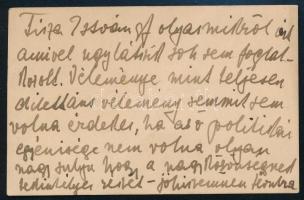 Tisza István olyasmikről írt
amivel nagylátszót soh sem foglal-
kozott. Véleménye mint teljesen
dilettáns vélemény semmit sem
volna érdekes, ha az ő politikai
egyenisége nem volna olyan
nagy súlyu hogy a nagyközönségnek
tekintélyes részét - jóhiszemüen